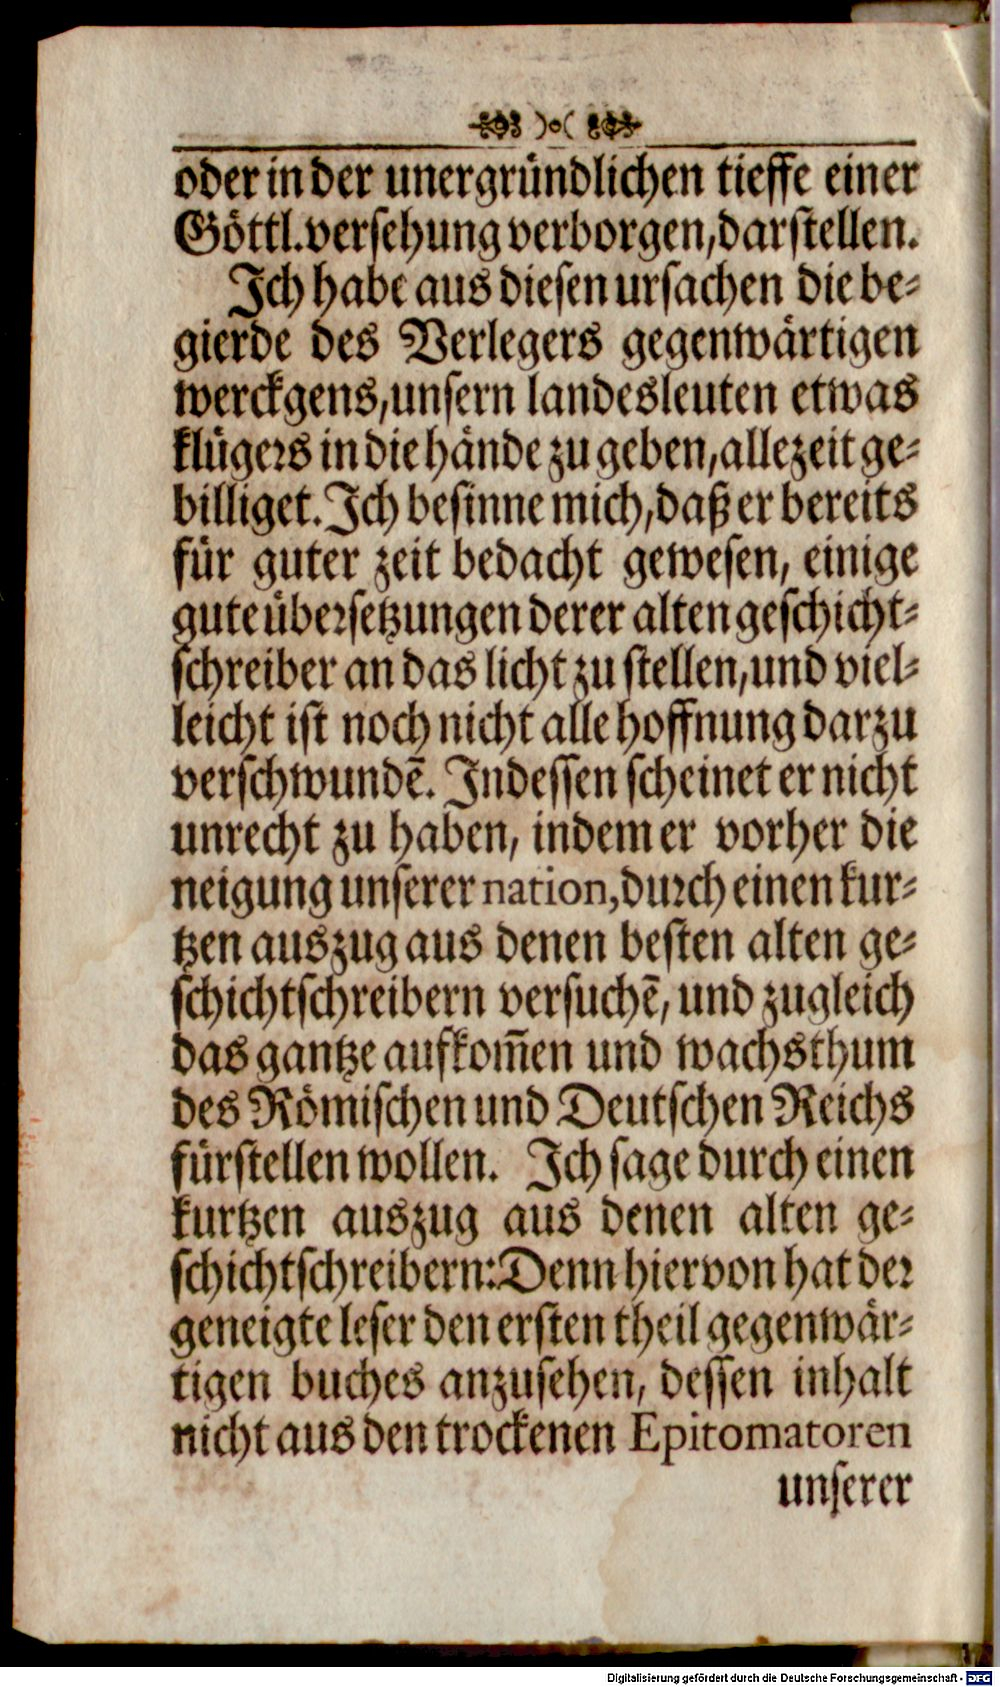 oder in der unergründlichen tieffe einer
Göttl. versehung verborgen, darstellen.
Ich habe aus diesen ursachen die be-
gierde des Verlegers gegenwärtigen
werckgens, unsern landesleuten etwas
klügers in die hände zu geben, allezeit ge-
billiget. Ich besinne mich, daß er bereits
für guter zeit bedacht gewesen, einige
gute übersetzungen derer alten geschicht-
schreiber an das licht zu stellen, und viel-
leicht ist noch nicht alle hoffnung darzu
verschwundē. Indessen scheinet er nicht
unrecht zu haben, indem er vorher die
neigung unserer nation, durch einen kur-
tzen auszug aus denen besten alten ge-
schichtschreibern versuchē, und zugleich
das gantze aufkom̃en und wachsthum
des Römischen und Deutschen Reichs
fürstellen wollen. Ich sage durch einen
kurtzen auszug aus denen alten ge-
schichtschreibern: Denn hiervon hat der
geneigte leser den ersten theil gegenwär-
tigen buches anzusehen, dessen inhalt
nicht aus den trockenen Epitomatoren
unserer
Digitalisierung gefördert durch die Deutsche Forschungsgemeinschaft - DFG